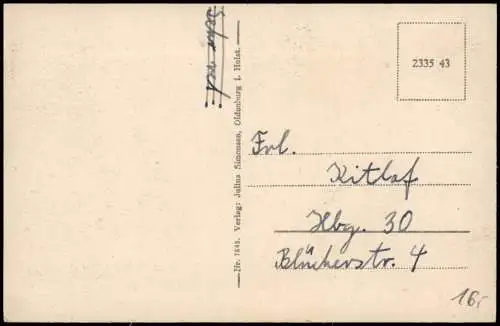 Sehr
2335 43
Nr. 7845. Verlag: Julius Simonsen, Oldenburg i. Holst.
Frl.
Kitlaf
Hbg. 30
Blücherstr. 4
16,-